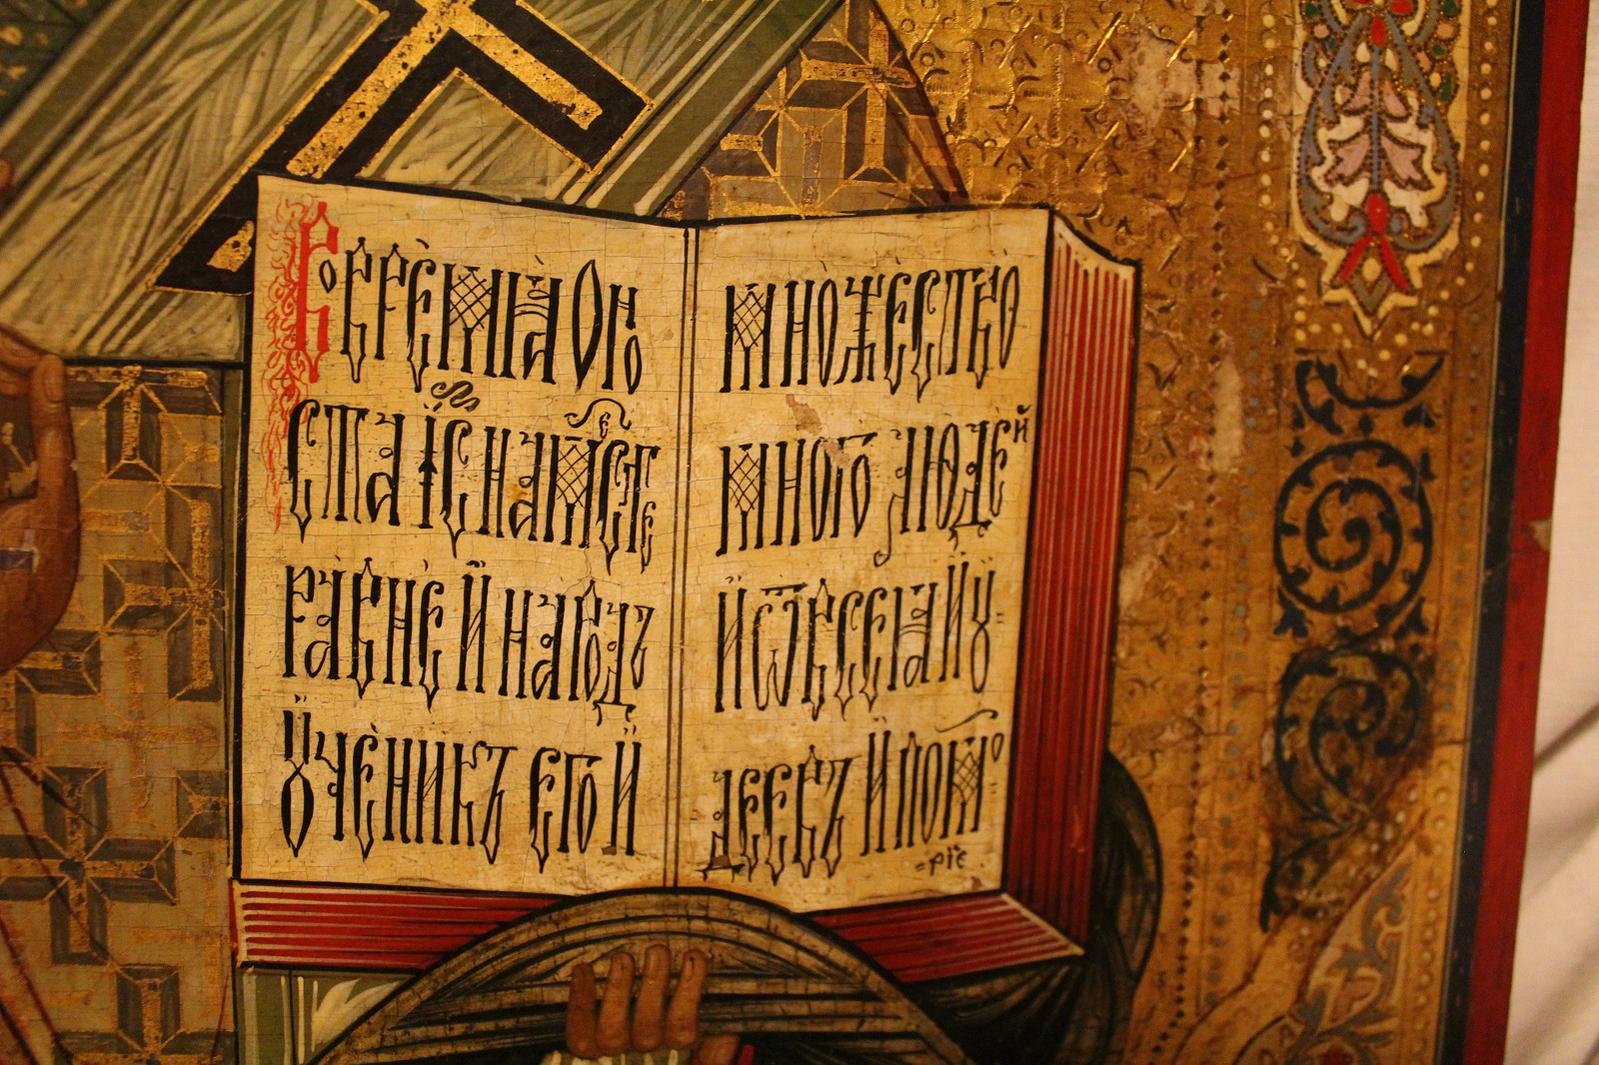 Во время оно
ста Іс҃ на мѣсте
равне и народъ
ꙋченикъ его и
множество
много людей
и ѿ всеѧ Іꙋ=
деѧ и пом=
=рїе